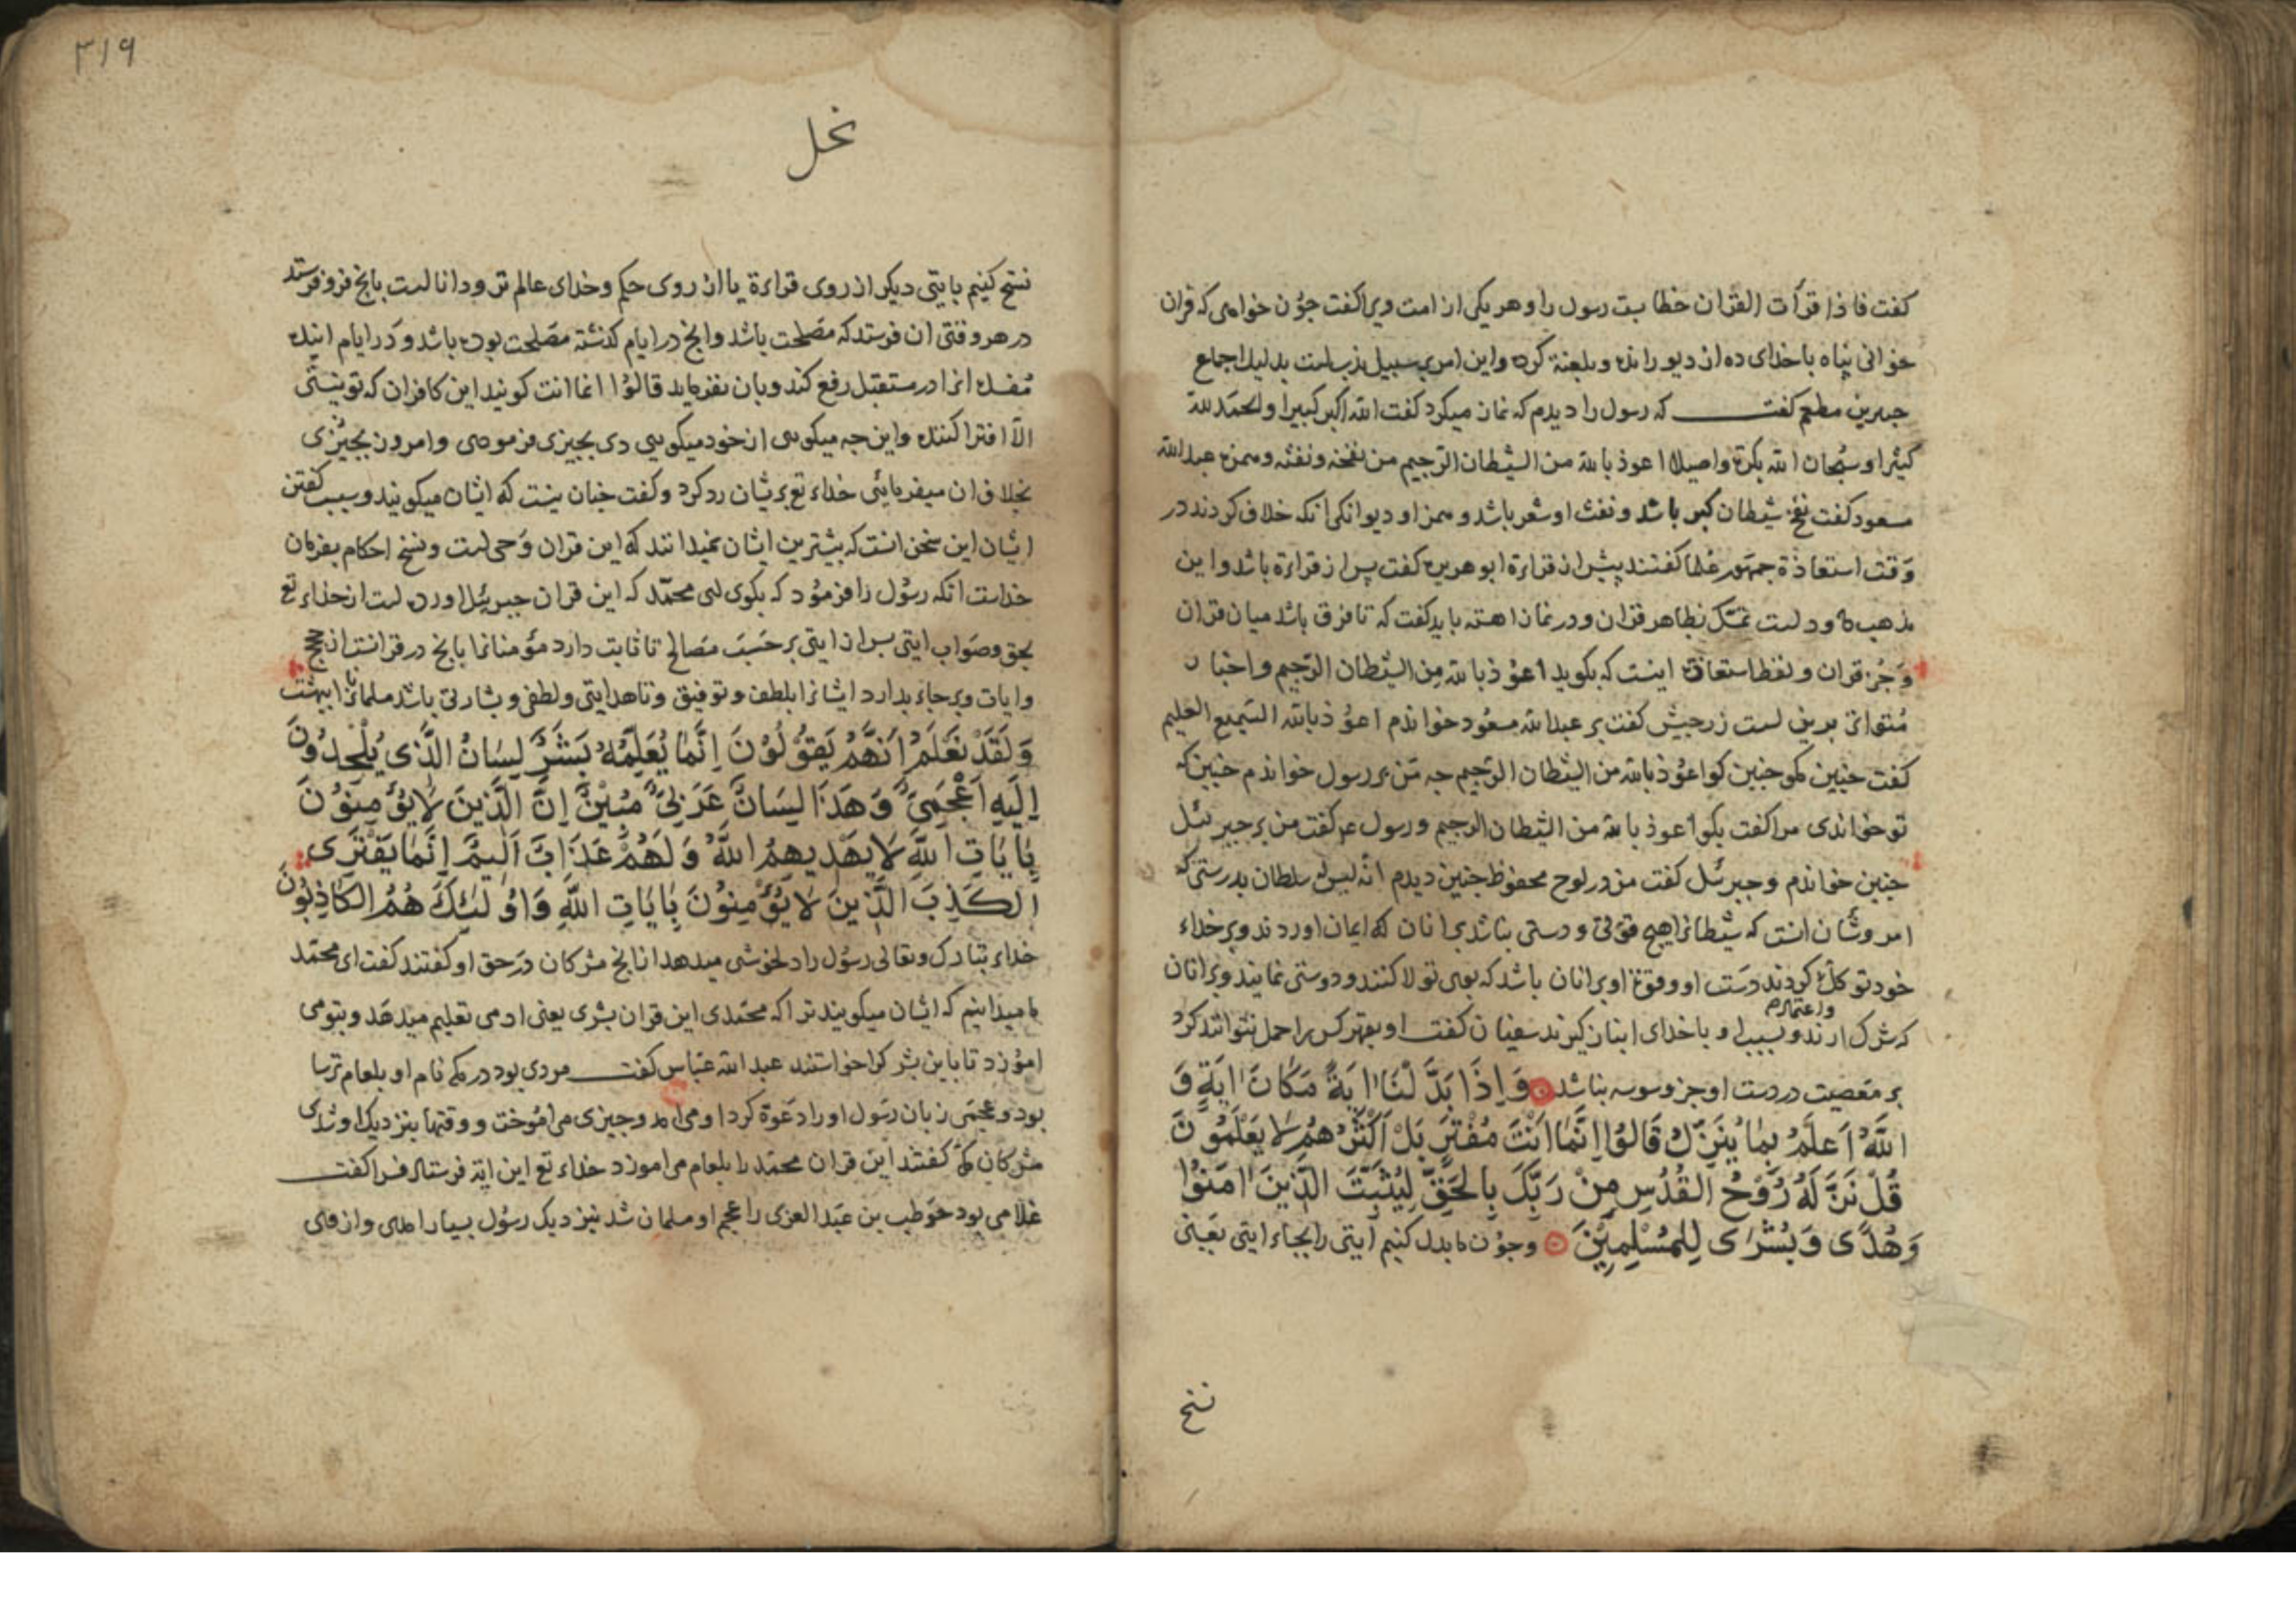 كفت فاذا قرأت القران خطا بست رسول را و هر یکی از امت ویرا كفت جون خواهی که قران
خوانی پناه با خدای ده از دیو رانده و بلعنة کرده و این امر بر سبیل ندب است بدلیل اجماع
جبیر بن مطعم كفت که رسول را دیدم که نماز میکرد كفت الله اکبر کبیرا والحمد لله
کثیرا و سبحان الله بکرة واصیلا اعوذ بالله من الشیطان الرجیم من نفخه ونفثه وهمزه عبدالله
مسعود كفت نفخ شیطان کبر باشد و نفث او شعر باشد و همز او دیوانکی انکه خلاف کردند در
وقت استعاذة جمهور علما كفتند پیش از قراءة ابوهریره كفت پس از قراءة باشد و این
مذهب داود است تمسک بظاهر قران و در نماز اهسته باید كفت که تا فرق باشد میان قران
و جز قران و لفظ استعاذه اینست که بکوید اعوذ بالله من الشیطان الرجیم و اخبار
متواتر برین است زر حبیش كفت بر عبدالله مسعود خواندم اعوذ بالله السمیع العلیم
كفت جنین مکو جنین کو اعوذ بالله من الشیطان الرجیم جه من بر رسول خواندم جنین که
تو خواندی مرا كفت بکو اعوذ بالله من الشیطان الرجیم و رسول عم كفت من بر جبرئیل
جنین خواندم و جبرئیل كفت من در لوح محفوظ جنین دیدم انه لیس له سلطان بدرستی که
امر و شان انست که شیطانرا هیچ قوتی و دستی نباشد بر انان که ایمان اوردند و بر خداء
خود توکل کردند دست او و وقوع او بر انان باشد که بوی تولا کنند و دوستی نمایند و بر انان
واعتمادهم
که شرک ارند و بسبب او با خدای انباز کیرند سفیان كفت او بهتر کس را حمل نتواند کرد
بر معصیت در دست او جز وسوسه نباشد وَاِذَا بَدَّلْنَا اٰیَةً مَكَانَ اٰیَةٍ وَ
اللّٰهُ اَعْلَمُ بِمَا یُنَزِّلُ قَالُوْا اِنَّمَا اَنْتَ مُفْتَرٍ بَلْ اَكْثَرُهُمْ لَا یَعْلَمُوْنَ
قُلْ نَزَّلَهُ رُوْحُ الْقُدُسِ مِنْ رَبِّكَ بِالْحَقِّ لِیُثَبِّتَ الَّذِیْنَ اٰمَنُوْا
وَهُدًى وَبُشْرٰى لِلْمُسْلِمِیْنَ و جون ما بدل کنیم ایتی را بجاء ایتی یعنی
نسخ
٣١٩
نحل
نسخ کنیم بایتی دیکر از روی قراءة یا از روی حکم و خدای عالم تر و دانا است بانج فرو فرستد
در هر وقتی ان فرستد که مصلحت باشد و انج در ایام کذشته مصلحت بوده باشد و در ایام اینده
مفسده انرا در مستقبل رفع کند و بان نفرماید قالوا انما انت کویند این کافران که تو نیستی
الا افترا کننده و این جه میکویی از خود میکویی دی بجیزی فرمودی و امروز بجیزی
بخلاف ان میفرمایی خداء تع بریشان رد کرد و كفت جنان نیست که ایشان میکویند و سبب كفتن
ایشان این سخن انست که بیشترین ایشان نمیدانند که این قران وحی است و نسخ احکام بفرمان
خداست انکه رسول را فرمود که بکوی ای محمد که این قران جبرئیل اورده است از خداء تع
بحق و صواب ایتی پس از ایتی بر حسب مصالح تا ثابت دارد مؤمنانرا بانج در قرانست از حجج
وایات و بر جاء بدارد ایشانرا بلطف و توفیق و تا هدایتی و لطفی و بشارتی باشد مسلمانانرا ببهشت
وَلَقَدْ نَعْلَمُ اَنَّهُمْ یَقُوْلُوْنَ اِنَّمَا یُعَلِّمُهُ بَشَرٌ لِسَانُ الَّذِی یُلْحِدُوْنَ
اِلَیْهِ اَعْجَمِیٌّ وَهَذَا لِسَانٌ عَرَبِیٌّ مُبِیْنٌ اِنَّ الَّذِیْنَ لَا یُؤْمِنُوْنَ
بِاٰیَاتِ اللّٰهِ لَا یَهْدِیهِمُ اللّٰهُ وَلَهُمْ عَذَابٌ اَلِیمٌ اِنَّمَا یَفْتَرِی
الْكَذِبَ الَّذِیْنَ لَا یُؤْمِنُوْنَ بِاٰیَاتِ اللّٰهِ وَاُولٰئِكَ هُمُ الْكَاذِبُوْنَ
خداء تبارک وتعالی رسول را دلخوشی میدهد از انج مشرکان در حق او كفتند كفت ای محمد
ما میدانیم که ایشان میکویند ترا که محمدی این قران بشری یعنی ادمی تعلیم میدهد و بتو می
اموزد تا باین بشر کرا خواستند عبدالله عباس كفت مردی بود در مکه نام او بلعام ترسا
بود و عجمی زبان رسول او را دعوة کرد او می امد و جیزی می اموخت و وقتها بنزدیک او شدی
مشرکان مکه كفتند این قران محمد را بلعام می اموزد خداء تع این ایة فرستاد فرا كفت
غلامی بود حویطب بن عبد العزی را عجم او مسلمان شد بنزدیک رسول بسیار امدی و از وی